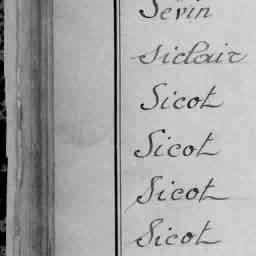 Sevin
Siclair
Sicot
Sicot
Sicot
Sicot